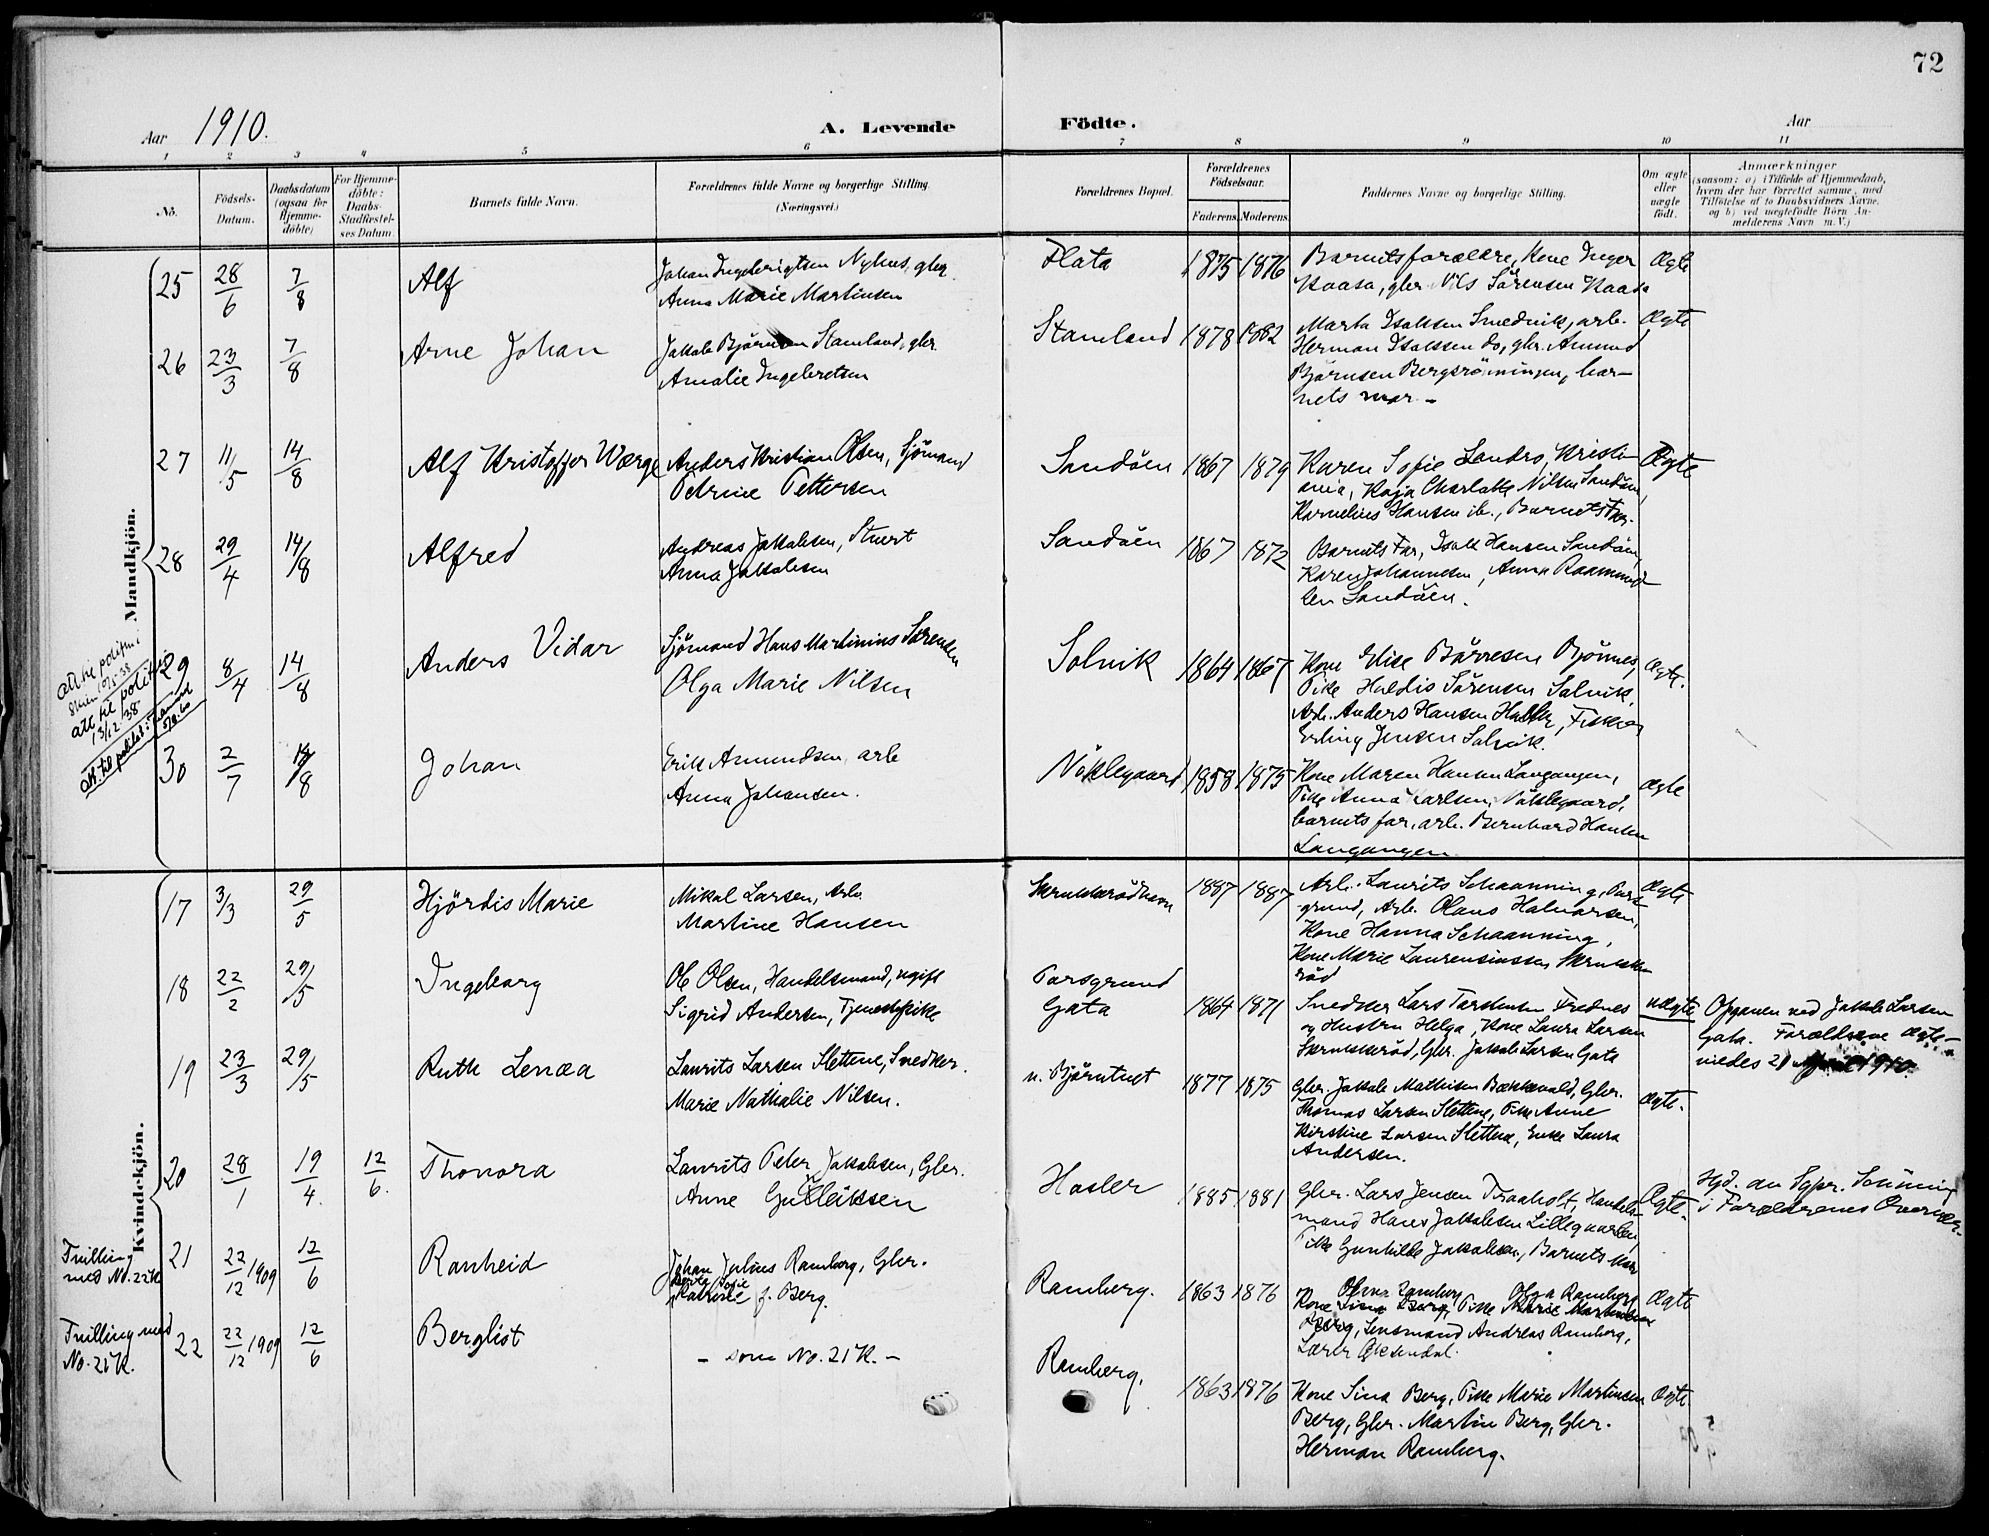 72
Aar 1910.
A. Levende Födte.
Aar
1 2 3 4 5 6 7 8 9 10 11
No.
Födsels-
Datum.
Daabsdatum
(ogsaa for
Hjemme-
döbte)
For Hjemme-
döbte:
Daabs-
Stadfæstel-
ses Datum
Barnets fulde Navn.
Forældrenes fulde Navne og borgerlige Stilling.
(Næringsvei.)
Forældrenes Bopæl.
Forældrenes
Födselsaar.
Faderens. Moderens.
Faddernes Navne og borgerlige Stilling.
Om ægte
eller
uægte
födt.
Anmærkninger
(saasom: a) i Tilfælde af Hjemmedaab,
hvem der har forrettet samme, med
Tilföielse af to Daabsvidners Navne.
og b) ved uægtefödte Börn An-
melderens Navn m. V.)
Mandkjön.
25 28/6 7/8 Alf
Johan Ingebrigtsen Nyhus, gbr.
Anna Marie Martinsen
Flata 1875 1876
Barnets forældre, Kone Inger
Kaasa, gbr. Nils Sörensen Kaasa
Ægte
26 23/3 7/8 Arne Johan
Jakob Björnsen Stamland, gbr.
Amalie Ingebretsen
Stamland 1878 1882
Marta Isaksen Smedvik, arb.
Herman Isaksen do, gbr. Amund
Björnsen Bergsröningen, bar-
nets mor. -
Ægte
27 11/5 14/8 Alf Kristoffer Værge
Anders Kristian Olsen, Sjömand
Petrine Pettersen
Sandöen 1867 1879
Karen Sofie Sandro, Kristi-
ania, Kaja Charlotte Nilsen Sandöen,
Kornelius Hansen ib., Barnets Far.
Ægte
28 29/4 14/8 Alfred
Andreas Jakobsen, Stuert
Anna Jakobsen
Sandöen 1867 1872
Barnets Far, Isak Hansen Sandöen,
Karen Johannesen, Anna Raamund-
sen Sandöen.
29 8/4 14/8 Anders Vidar
Sjömand Hans Martinius Sörensen
Olga Marie Nilsen
Solvik 1864 1867
Kone Elise Börresen Björnnes,
Pike Haldis Sörensen Solvik,
Arb. Anders Hansen, Fisker
Erling Jensen Solvik.
Ægte.
att. til politim. i
Skien 10/5-38
att til politiet
13/12 38
30 2/7 14/8 Johan
Erik Amundsen, arb
Anna Johansen.
Nöklegaard 1858 1875
Kone Maren Hansen Langangen,
Pike Anna Karlsen, Nöklegaard,
barnets far, arb. Bernhard Hansen
Langangen.
Ægte
Kvindekjön.
17 3/3 29/5 Hjördis Marie
Mikal Larsen, Arb.
Martine Hansen
1887 1887
Arb. Laurits Schaanning, Pors-
grund, Arb. Olaus Halvorsen,
Kone Hanna Schaanning,
Kone Marie Laurensiussen Skrukke-
röd
Ægte
18 22/2 29/5 Ingeborg
Ole Olsen, Handelsmand, ugift
Sigrid Andersen, Tjenestepike
Porsgrund
Gata 1864 1871
Snedker Lars Torstensen Frednes
og Hustru Helga, Kone Laura Larsen
Skrukkeröd, Gbr. Jakob Larsen Gata
uægte
Opgaven ved Jakob Larsen
Gata. Forældrene ægte-
viedes 21 April 1910.
19 23/3 29/5 Ruth Lenæa
Laurits Larsen Slettene, Snedker.
Marie Nathalie Nilsen.
n. Björntvet 1877 1875
Gbr. Jakob Mathisen Bækkevold, Gbr.
Thomas Larsen Slettene, Pike Anne
Kirstine Larsen Slettene, Enke Laura
Andersen.
Ægte.
20 28/1 19/4. 12/6. Thonora
Laurits Peter Jakobsen, Gbr.
Anne Gulleiksen
Hasler 1885 1881
Gbr. Lars Jensen Traaholt, Handels-
mand Hans Jakobsen Lillegaarden,
Pike Gunhilde Jakobsen, Barnets Mor
Ægte.
Hjd. av Sgpr. Schöning
i Forældrenes Overvær.
Tvilling
med No. 22 K.
21 22/12 1909 12/6 Ranheid
Johan Julius Ramberg, Gbr.
Berta Sofie
Katrine f. Berg.
Ramberg. 1863 1876
Olga Ramberg
Kone Sina Berg, Pike Marie Martinsen
Berg, Lensmand Andreas Ramberg,
Lærer Gjesendal.
Ægte
Tvilling med
No. 21 K.
22 22/12 1909 12/6 Bergliot
- som No. 21 K. -
Ramberg. 1863 1876
Kone Sina Berg, Pike Marie Martinsen
Berg, Gbr. Martin Berg, Gbr.
Herman Ramberg.
Ægte